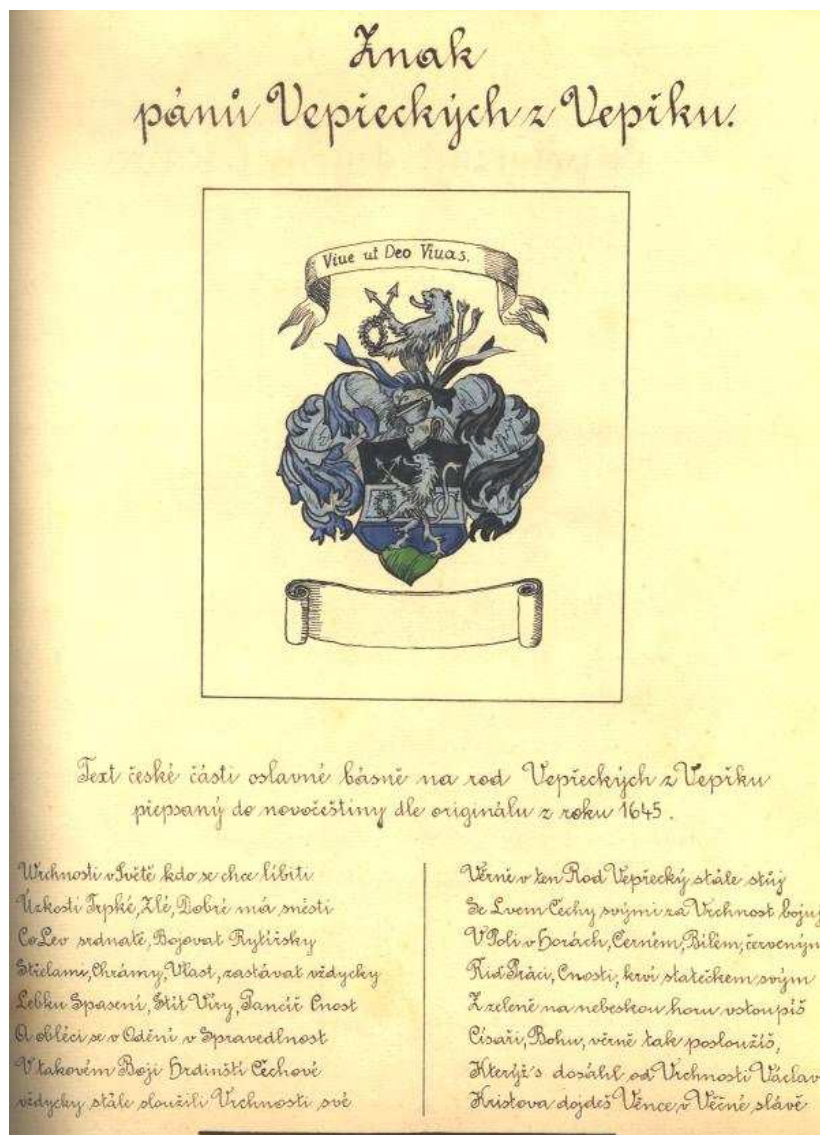 Znak
pánů Vepřeckých z Vepřku.
Viue ut Deo Viuas.
Text české části oslavné básně na rod Vepřeckých z Vepřku
přepsaný do novočeštiny dle originálu z roku 1645.
Vrchnosti v Světě kdo se chce líbiti
Úzkosti Trpké, Zlé, Dobré má snésti
Co Lev srdnatě, Bojovat Rytířsky
Střelami, Chrámy, Vlast, zastávat vždycky
Lebku Spasení, Štít Víry, Pancíř Cnost
A obléci se v Odění v Spravedlnost
V takovém Boji Hrdinští Čechové
vždycky stále sloužili Vrchnosti své
Věrně v ten Rod Vepřecký stále stůj
Se Lvem Čechy svými za Vrchnost bojuj
V Poli v Horách, Černém, Bílém, červeným
Práci, Cnosti, krví statečkem svým
Z zeleně na nebeskou horu vstoupíš
Císaři, Bohu, věrně tak posloužíš,
Kterýž's dosáhl od Vrchnosti Václav
Kristova dojdeš Věnce, v Věčné slávě